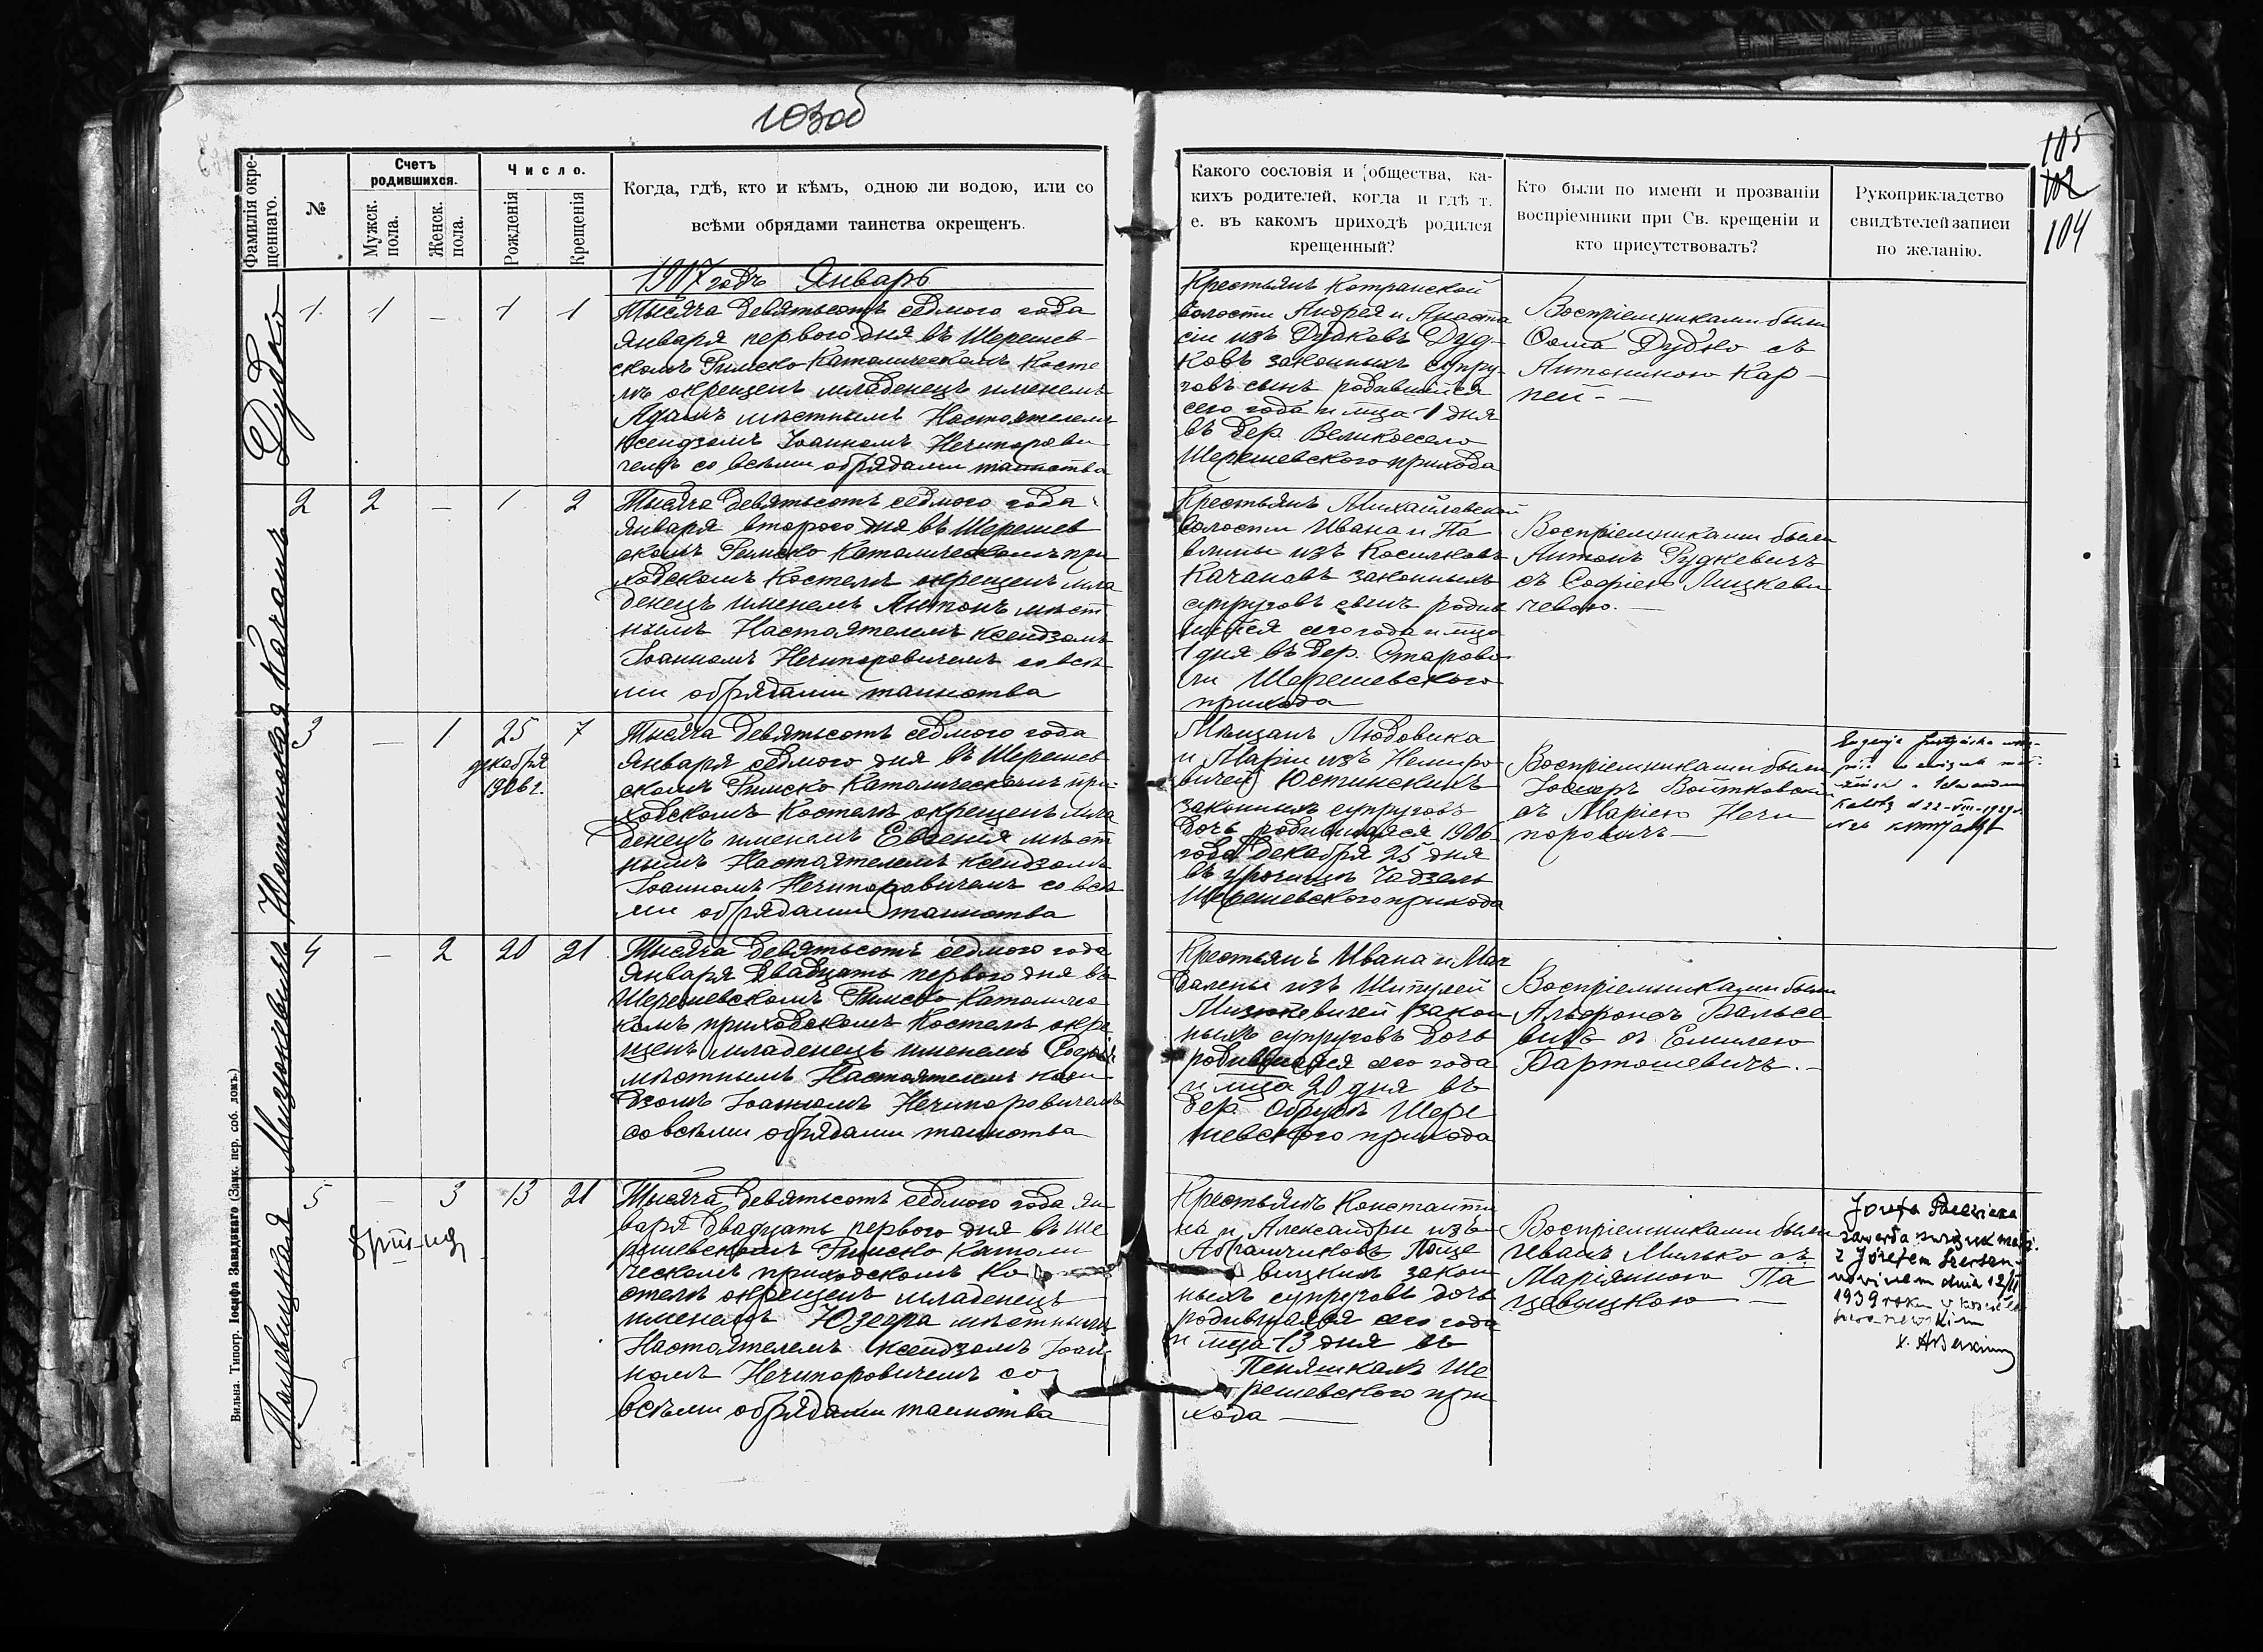 103об
105
102
104
Фамилія окре-
щеннаго.
№
Счетъ
родившихся.
Мужск.
пола.
Женск.
пола.
Число.
Рожденія
Крещенія
Когда, гдѣ, кто и кѣмъ, одною ли водою, или со
всѣми обрядами таинства окрещенъ.
Какого сословія и общества, ка-
кихъ родителей, когда и гдѣ т.
е. въ какомъ приходѣ родился
крещенный?
Кто были по имени и прозванію
воспріемники при Св. крещеніи и
кто присутствовалъ?
Рукоприкладство
свидѣтелей записи
по желанію.
1907 годъ Январь
Дудко
1 1 — 1 1
Тысяча девятьсотъ седмого года
Января перваго дня въ Шерешев-
скомъ Римско Католическомъ Косте
лѣ окрещенъ младенецъ именемъ
Адамъ мѣстнымъ Настоятелемъ
Ксендзомъ Іоанномъ Нечипорови
чемъ со всѣми обрядами таинства
Крестьянъ Котранской
волости Андрея и Анаста
сіи изъ Дудковъ Дуд-
ковъ законныхъ супру-
говъ сынъ родившійся
сего года и мца 1 дня
въ дер. Великоесело
Шерешевского прихода
Воспріемниками были
Ѳома Дудко съ
Антониною Кар-
пей -
Качанъ
2 2 — 1 2
Тысяча девятьсотъ седмого года
Января второго дня въ Шерешев
скомъ Римско Католическомъ при
ходскомъ Костелѣ окрещенъ мла
денецъ именемъ Антонъ мѣст
нымъ Настоятелемъ Ксендзомъ
Іоанномъ Нечипоровичемъ со всѣ
ми обрядами таинства
Крестьянъ Михайловской
волости Ивана и Па
влины изъ Косилковъ
Качановъ законныхъ
супруговъ сынъ родив
шійся сего года и мца
1 дня въ дер. Старово
ли Шерешевского
прихода
Воспріемниками были
Антонъ Рудкевичъ
съ Софіею Мицкеви
чевою. —
Юстинская
3 — 1 25 7
декабря
1906 г.
Тысяча девятьсотъ седмого года
Января седмого дня въ Шерешев
скомъ Римско Католическомъ при-
ходскомъ Костелѣ окрещенъ мла
денецъ именемъ Евгенія мѣст
нымъ Настоятелемъ Ксендзомъ
Іоанномъ Нечипоровичемъ со всѣ
ми обрядами таинства
Мѣщанъ Людовика
и Маріи изъ Немиро
вичей Юстинскихъ
законныхъ супруговъ
дочь родившаяся 1906
года Декабря 25 дня
въ урочищѣ Чадзель
Шерешевского прихода
Воспріемниками были
Іосифъ Войтковскій
съ Маріею Нечи
поровичъ —
Eugenja Justyńska
22-VIII-1929
Мизюкевичъ
4 — 2 20 21
Тысяча девятьсотъ седмого года
Января двадцать перваго дня въ
Шерешевскомъ Римско Католичес
комъ приходскомъ Костелѣ окре
щенъ младенецъ именемъ Софія
мѣстнымъ Настоятелемъ Ксен
дзомъ Іоанномъ Нечипоровичемъ
со всѣми обрядами таинства
Крестьянъ Ивана и Маг
далены изъ Шипулей
Мизюкевичей закон
ныхъ супруговъ дочь
родившаяся сего года
и мца 20 дня въ
дер. Обрубъ Шере
шевского прихода
Воспріемниками были
Альфонсъ Бальсе
вичъ съ Емилею
Бартошевичъ. -
Пацевицкая
5 — 3 13 21
Тысяча девятьсотъ седмого года Ян
варя двадцать перваго дня въ Ше
решевскомъ Римско Католи
ческомъ приходскомъ Ко
стелѣ окрещенъ младенецъ
именемъ Юзефа мѣстнымъ
Настоятелемъ Ксендзомъ Іоан
номъ Нечипоровичемъ со
всѣми обрядами таинства
Крестьянъ Константи
на и Александры изъ
Абрамчиковъ Паце
вицкихъ закон
ныхъ супруговъ дочь
родившаяся сего года
и мца 13 дня въ
Пеняшкахъ Ше
решевского при
хода —
Воспріемниками были
Иванъ Милько съ
Маріянною Па
цевицкою —
Józefa Pacewicka
zawarła związek małż.
z Józefem
dnia 12/II
1939 roku w kościele
Вильна. Типогр. Іосифа Завадзкаго (Замк. пер. соб. домъ.)